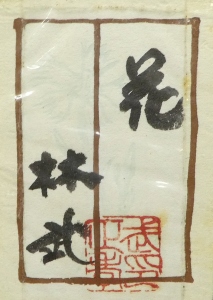 花
林武